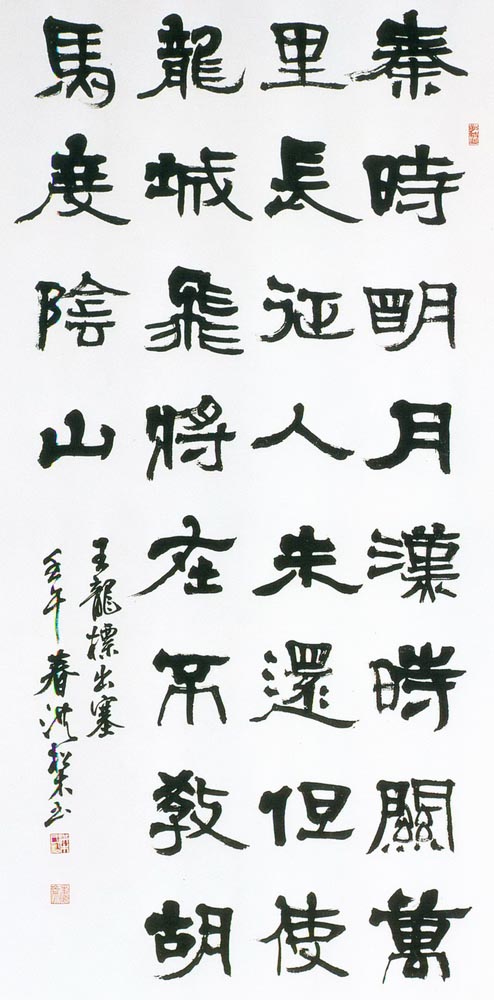 秦時明月漢時關萬
里長征人未還但使
龍城飛將在不教胡
馬度陰山
王龍標出塞
壬午春洪